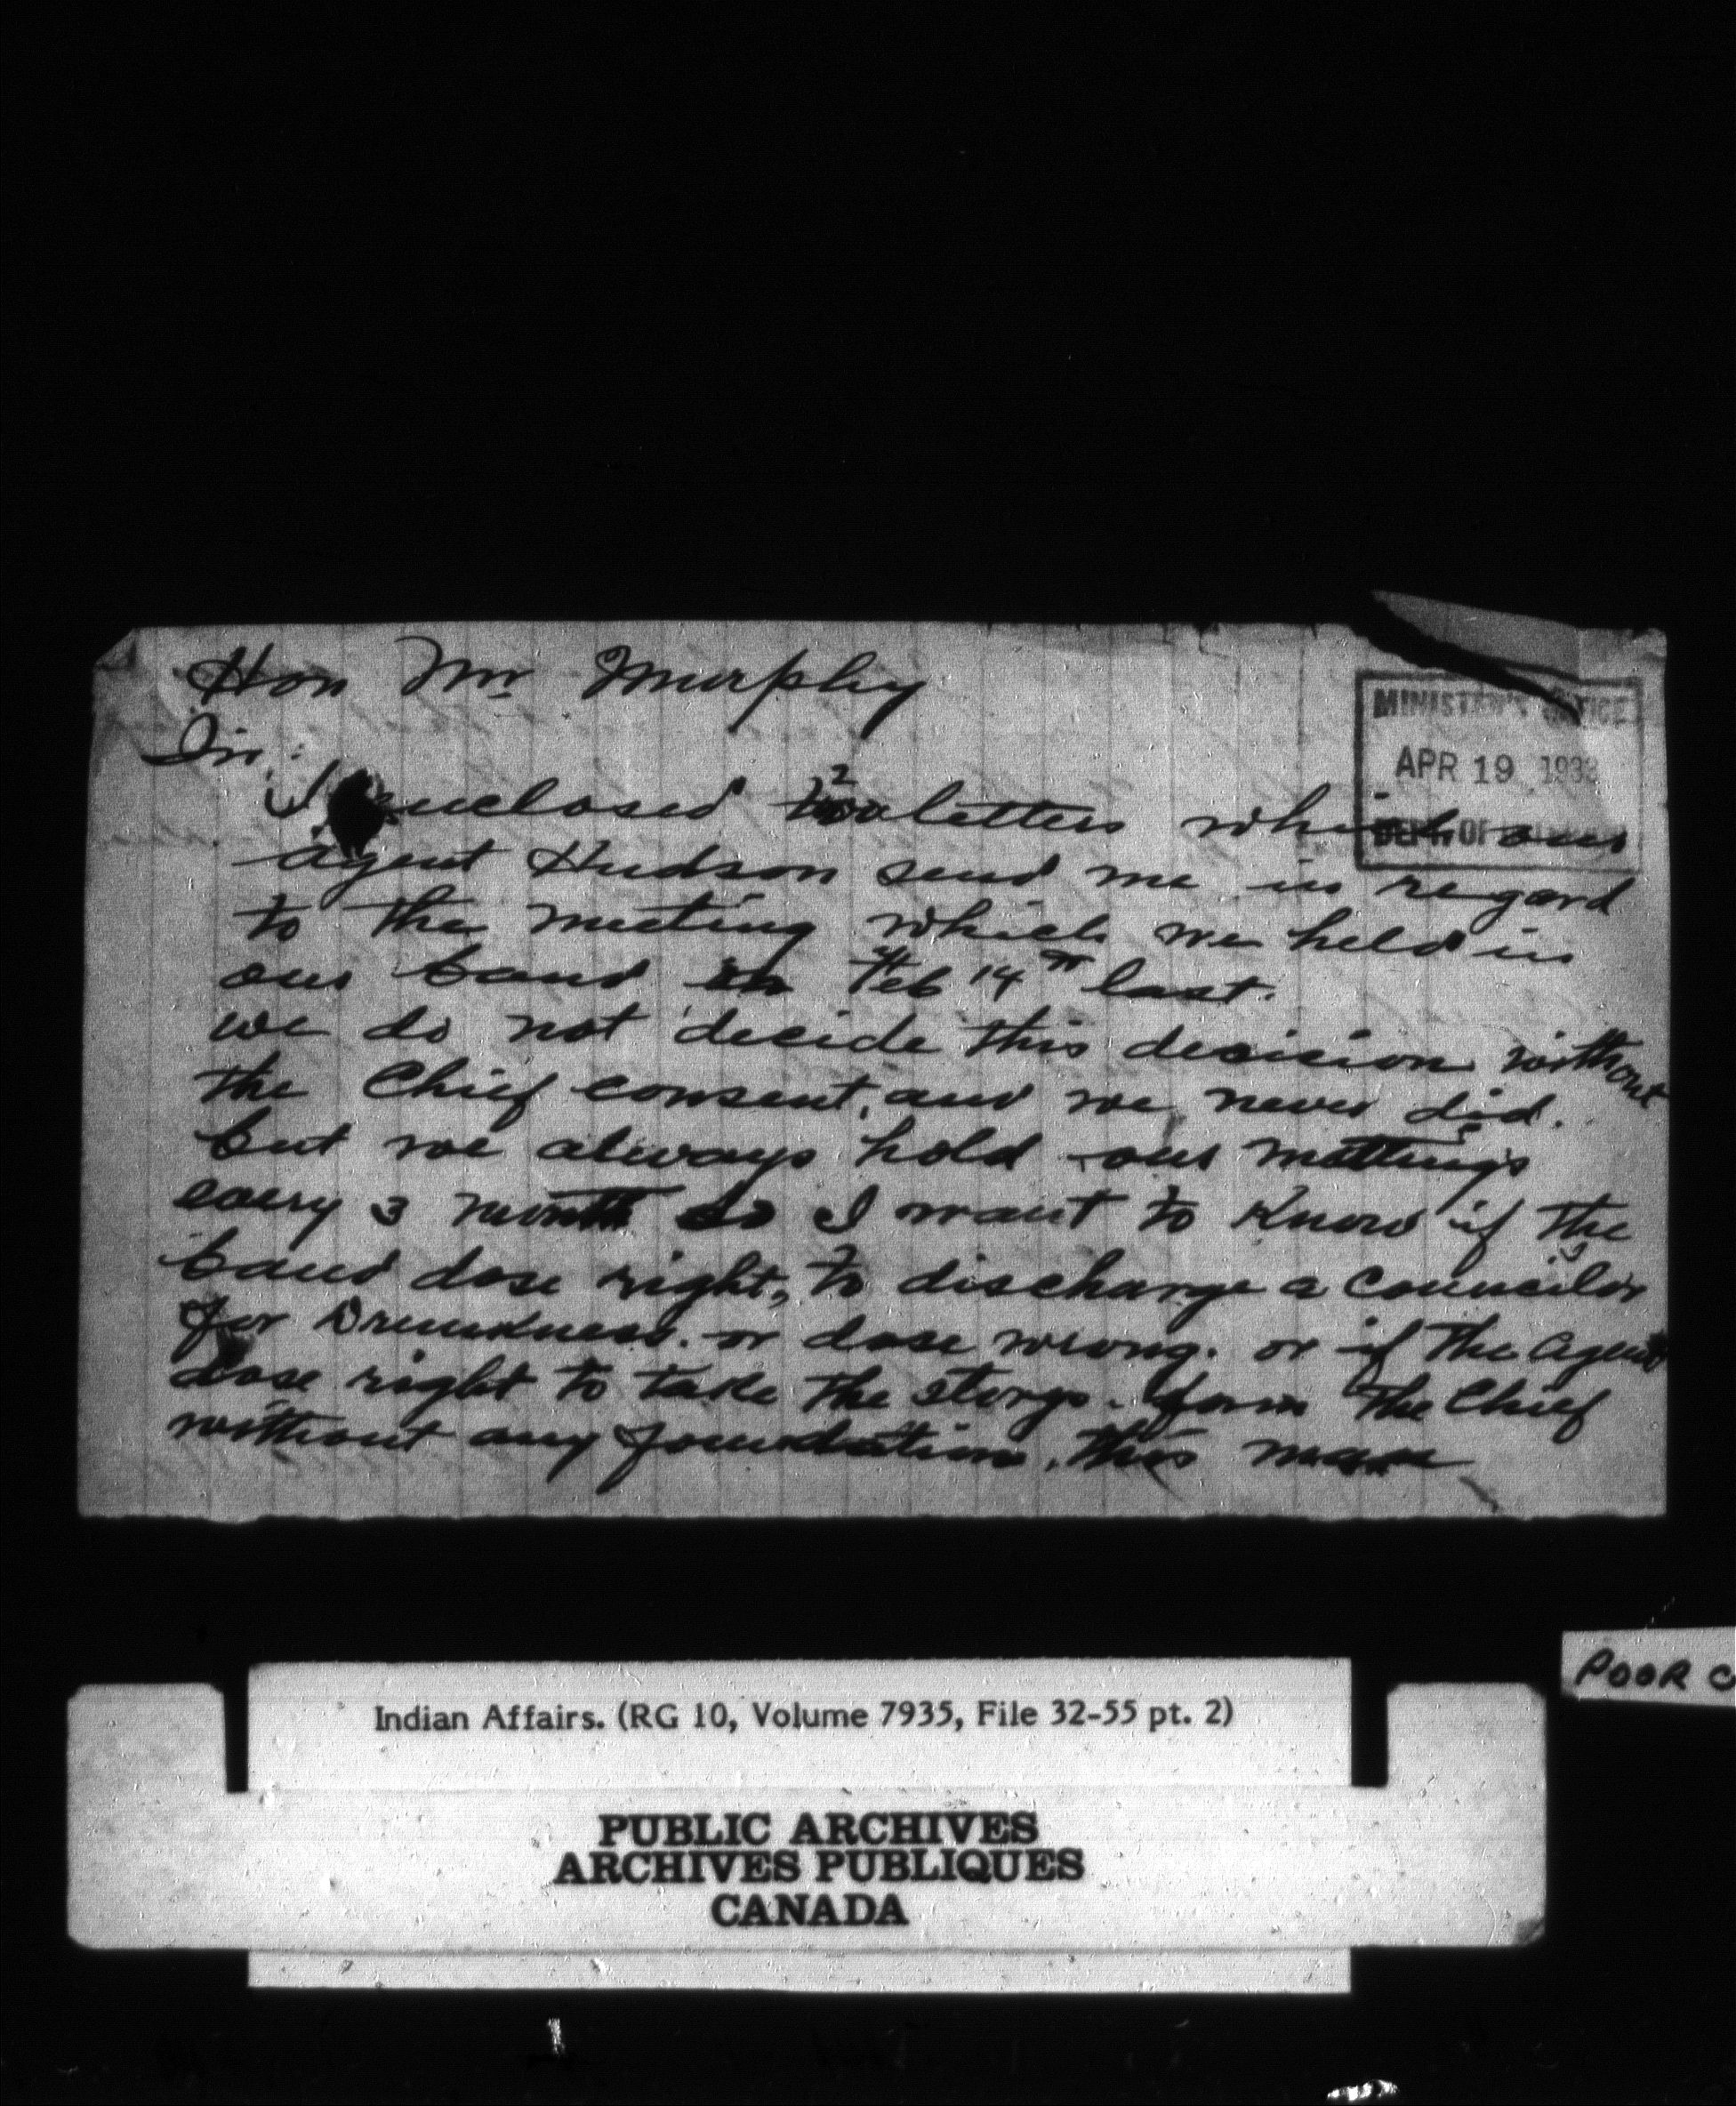 Hon Mr Murphy
MINISTER'S OFFICE
APR 19 193
DEPT. OF
Sir:
I enclosed 2 letters which our
agent Hudson send me in regard
to the meeting which we held in
our band on Feb 14th last.
we do not decide this decision without
the Chief consent, and we never did.
but we always hold our mettings
every 3 month so I want to Know if the
band dose right, to discharge a Councilor
for Drunkness. or dose wrong. or if the agent
dose right to take the storys. form the Chief
without any foundation, this man
POOR C
Indian Affairs. (RG 10, Volume 7935, File 32-55 pt. 2)
PUBLIC ARCHIVES
ARCHIVES PUBLIQUES
CANADA